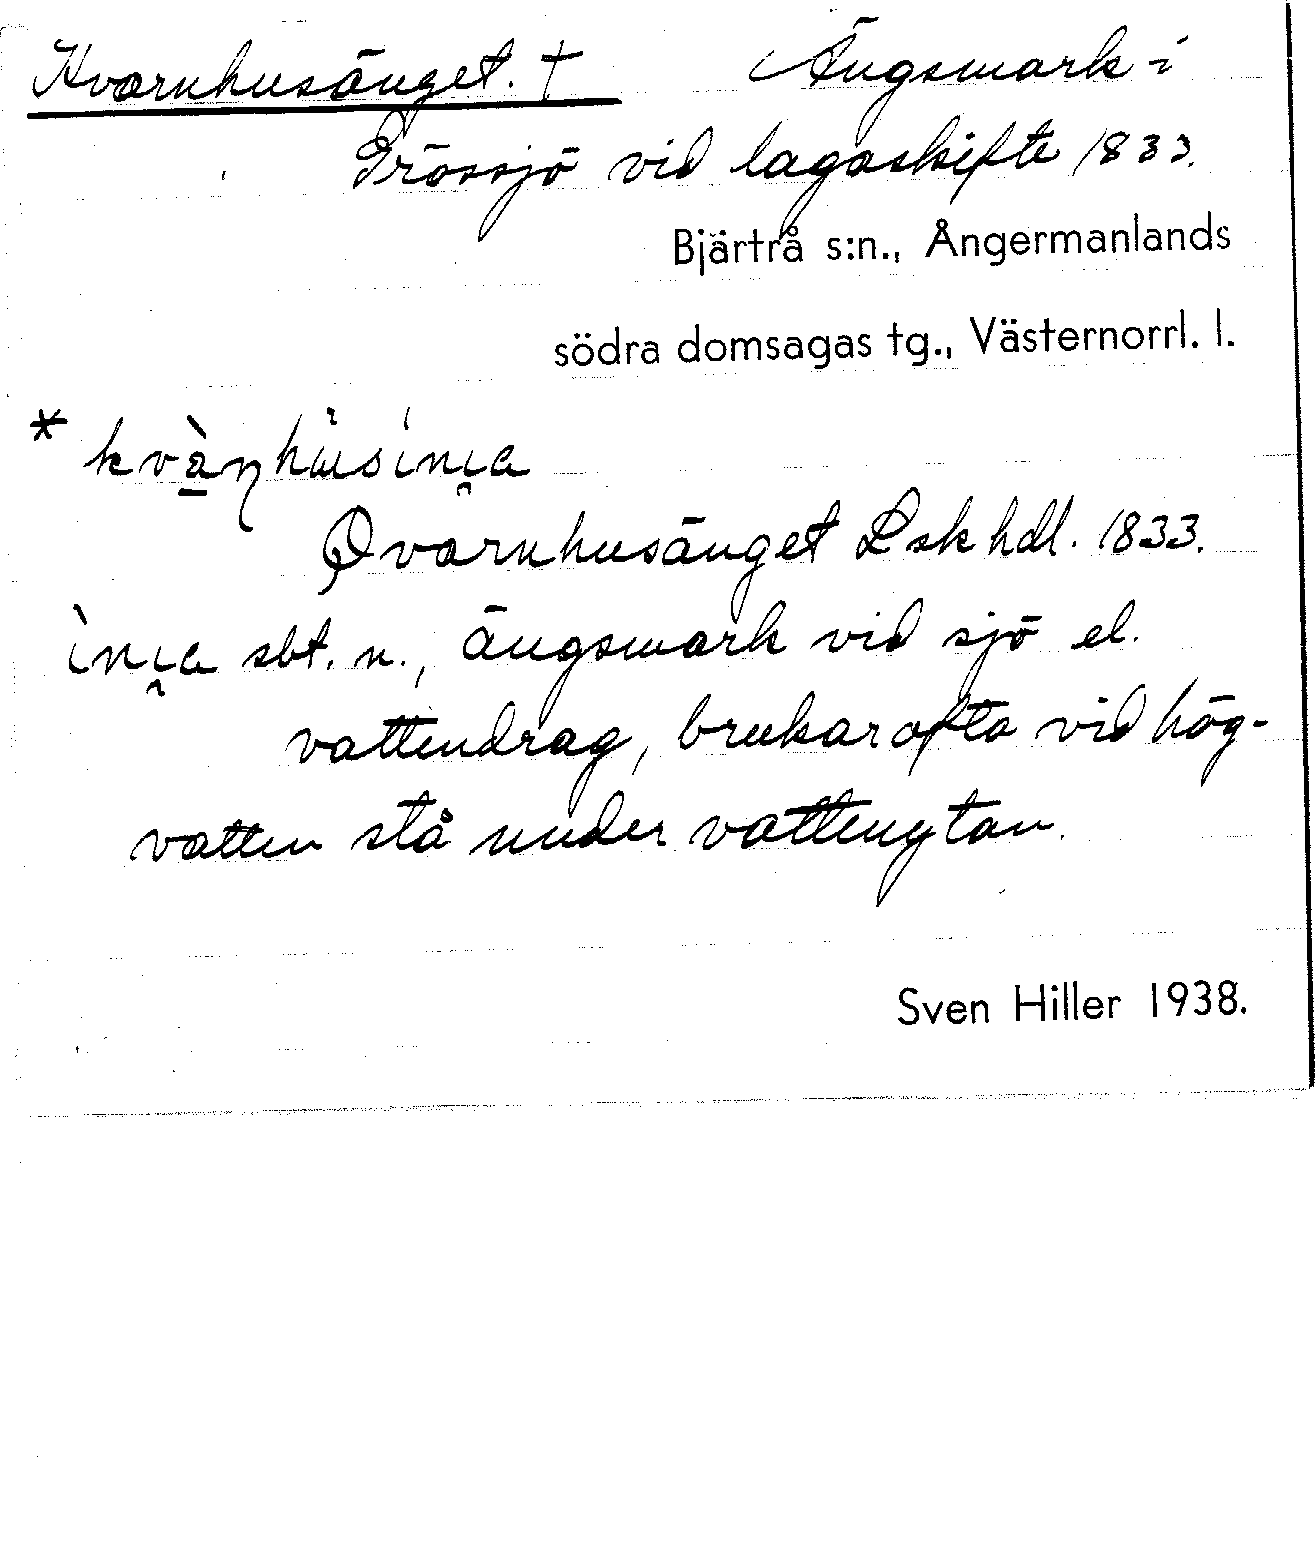 Kvarnhusänget. † Ängsmark i
Grössjö vid lagaskifte 1833.
Bjärtrå s:n., Ångermanlands
södra domsagas tg., Västernorrl. l.
Qvarnhusänget Lsk hdl. 1833.
sbt. n., ängsmark vid sjö el.
vattendrag, brukar ofta vid hög-
vatten stå under vattenytan.
Sven Hiller 1938.